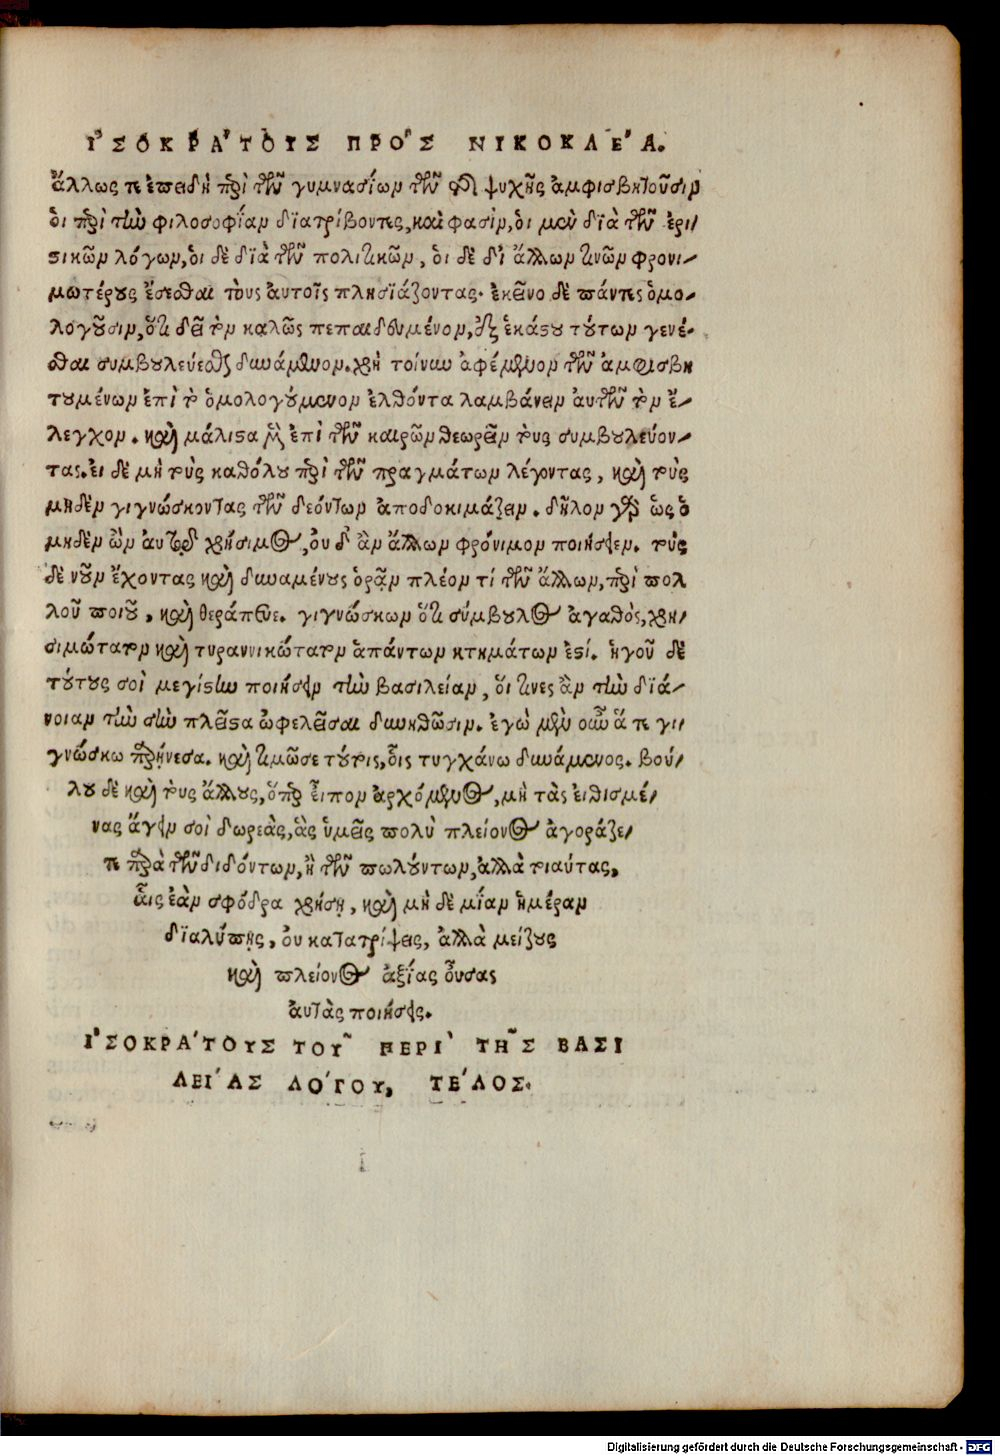 ἸΣΟΚΡΆΤΟΥΣ ΠΡῸΣ ΝΙΚΟΚΛΈΑ.
ἄλλως τε ἐπειδὴ περὶ τῶν γυμνασίων τῶν τῆς ψυχῆς ἀμφισβητοῦσιν
ὁι περὶ τὴν φιλοσοφίαν διατρίβοντες, καὶ φασὶν, ὁι μὲν διὰ τῶν ἐρι/
στικῶν λόγων, ὁι δὲ διὰ τῶν πολιτικῶν, ὁι δὲ δἰ ἄλλων τινῶν φρονι/
μωτέρους ἔσεσθαι τοὺς ἀυτοῖς πλησϊάζοντας. ἐκεῖνο δὲ πάντες ὁμο/
λογοῦσιν, ὅτι δεῖ τὸν καλῶς πεπαιδευμένον, ἐξ ἑκάστου τούτων γενέ/
σθαι συμβουλεύεσθαι δυνάμενον. χρὴ τοίνυν ἀφέμενον τῶν ἀμφισβη
τουμένων ἐπὶ τὸ ὁμολογούμενον ἐλθόντα λαμβάνειν ἀυτῶν τὸν ἔ/
λεγχον. καὶ μάλιστα μὲν ἐπὶ τῶν καιρῶν θεωρεῖν τοὺς συμβουλεύον/
τας. ἐι δὲ μὴ τοὺς καθόλου περὶ τῶν πραγμάτων λέγοντας, καὶ τοὺς
μηδὲν γιγνώσκοντας τῶν δεόντων ἀποδοκιμάζειν. δῆλον γὰρ ὡς ὁ
μηδὲν ὢν ἀυτῷ χρήσιμος, ὀυ δ' ἂν ἄλλον φρόνιμον ποιήσειεν. τοὺς
δὲ νοῦν ἔχοντας καὶ δυναμένους ὁρᾷν πλέον τί τῶν ἄλλων, περὶ πολ
λοῦ ποιοῦ, καὶ θεράπευε. γιγνώσκων ὅτι σύμβουλος ἀγαθὸς, χρη/
σιμώτατον καὶ τυραννικώτατον ἁπάντων κτημάτων ἐστί. ἡγοῦ δὲ
τούτους σοὶ μεγίστην ποιήσειν τὴν βασιλείαν, ὅι τινες ἂν τὴν διά/
νοιαν τὴν σὴν πλεῖστα ὠφελεῖσαι δυνηθῶσιν. ἐγὼ μὲν οὖν ἅ τε γι/
γνώσκω παρῄνεσα. καὶ τιμῶσε τούτοις, ὅις τυγχάνω δυνάμενος. βού/
λου δὲ καὶ τοὺς ἄλλους, ὅπερ εἶπον ἀρχόμενος, μὴ τὰς ἐιθισμέ/
νας ἄγειν σοὶ δωρεὰς, ἃς ὑμεῖς πολὺ πλείονος ἀγοράζε/
τε παρὰ τῶν διδόντων, ἢ τῶν πωλούντων, ἀλλὰ τοιαύτας,
ἆις ἐὰν σφόδρα χρήσῃ, καὶ μὴ δὲ μίαν ἡμέραν
διαλύπῃς, ὀυ κατατρίψεις, ἀλλὰ μείζους
καὶ πλείονος ἀξίας ὄυσας
ἀυτὰς ποιήσεις.
ἸΣΟΚΡΆΤΟΥΣ ΤΟΥ͂ ΠΕΡῚ ΤΗ͂Σ ΒΑΣΙ
ΛΕΊΑΣ ΛΌΓΟΥ, ΤΈΛΟΣ.
Digitalisierung gefördert durch die Deutsche Forschungsgemeinschaft - DFG